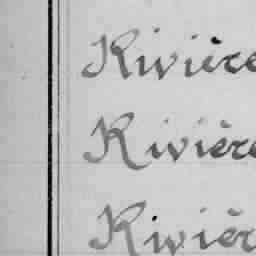 Rivière
Rivière
Rivièr